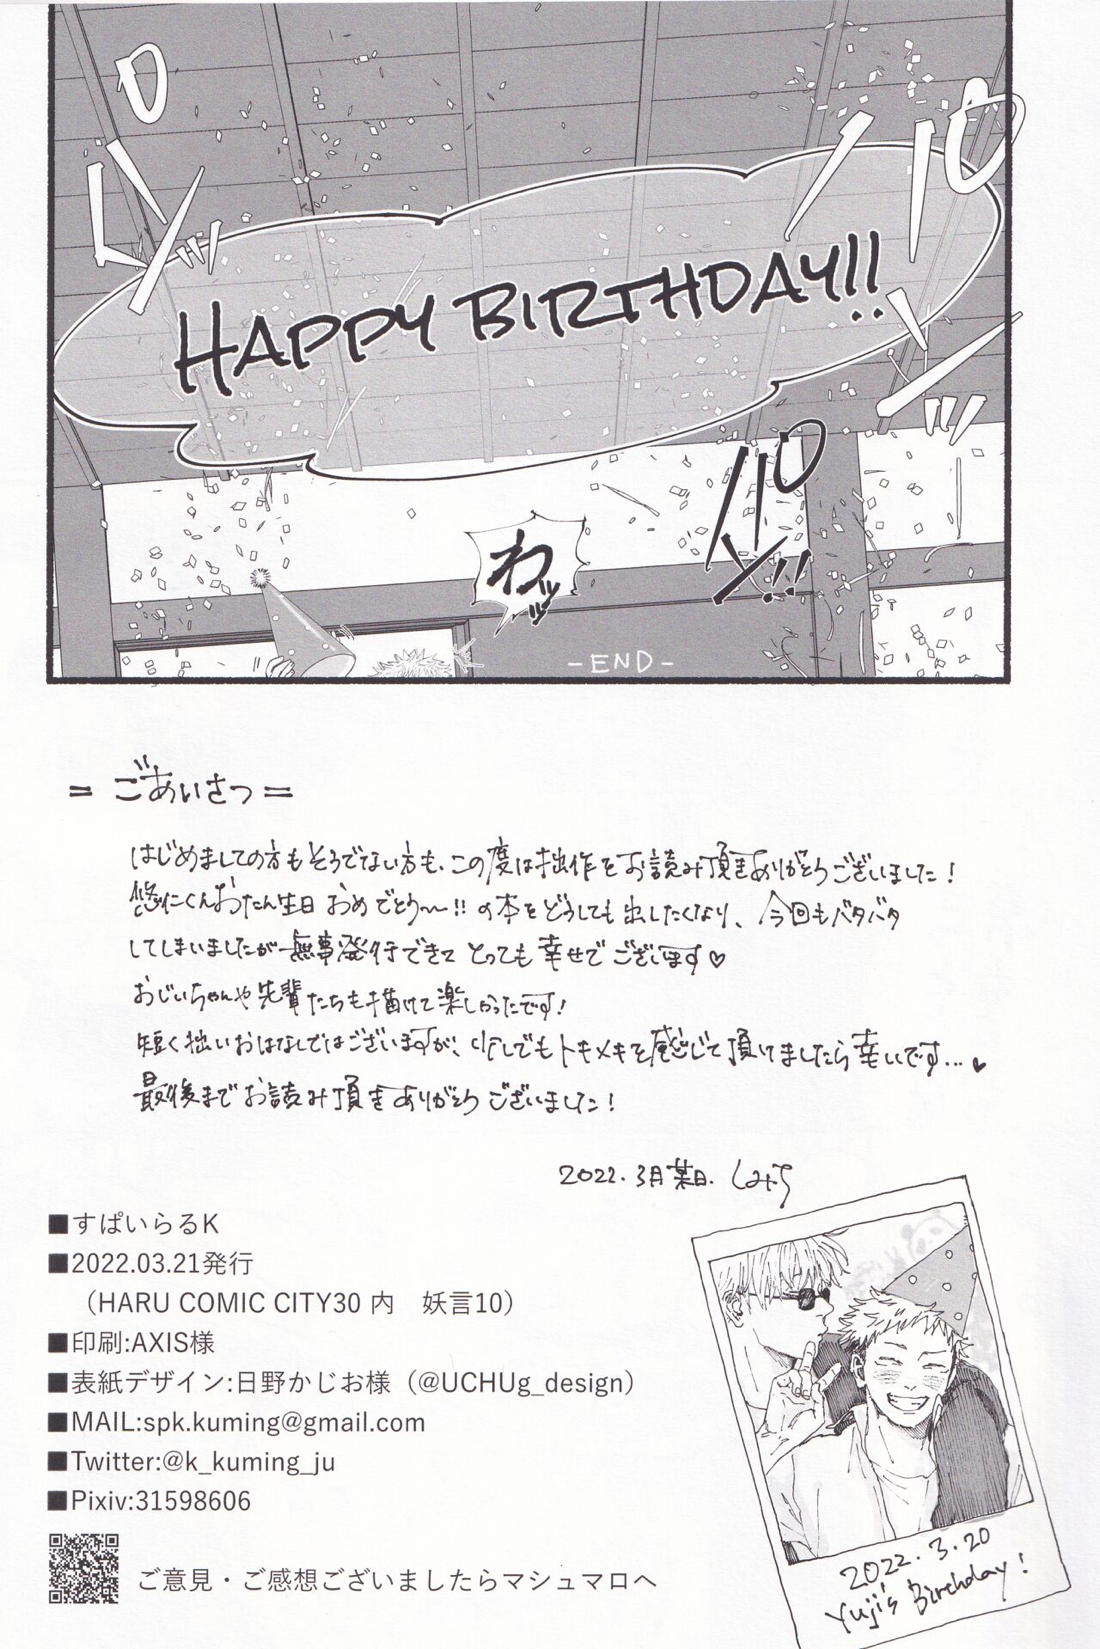 パンッ
パンッ
HAPPY BIRTHDAY!!
パン!!
わッ
-END-
= ごあいさつ =
はじめましての方もそうでない方も、この度は拙作をお読み頂きありがとうございました!
悠仁くんおたん生日おめでとう〜!!の本をどうしても出したくなり、今回もバタバタ
してしまいましたが無事発行できてとっても幸せでございます♡
おじいちゃんや先輩たちも描けて楽しかったです!
短く拙いおはなしではございますが、少しでもトキメキを感じて頂けましたら幸いです…♥
最後までお読み頂きありがとうございました!
2022.3月某日.
■すぱいらるK
■2022.03.21発行
(HARU COMIC CITY30 内 妖言10)
■印刷:AXIS様
■表紙デザイン:日野かじお様(@UCHUg_design)
■MAIL:spk.kuming@gmail.com
■Twitter:@k_kuming_ju
■Pixiv:31598606
ご意見・ご感想ございましたらマシュマロへ
2022.3.20
Yuji's Birthday!